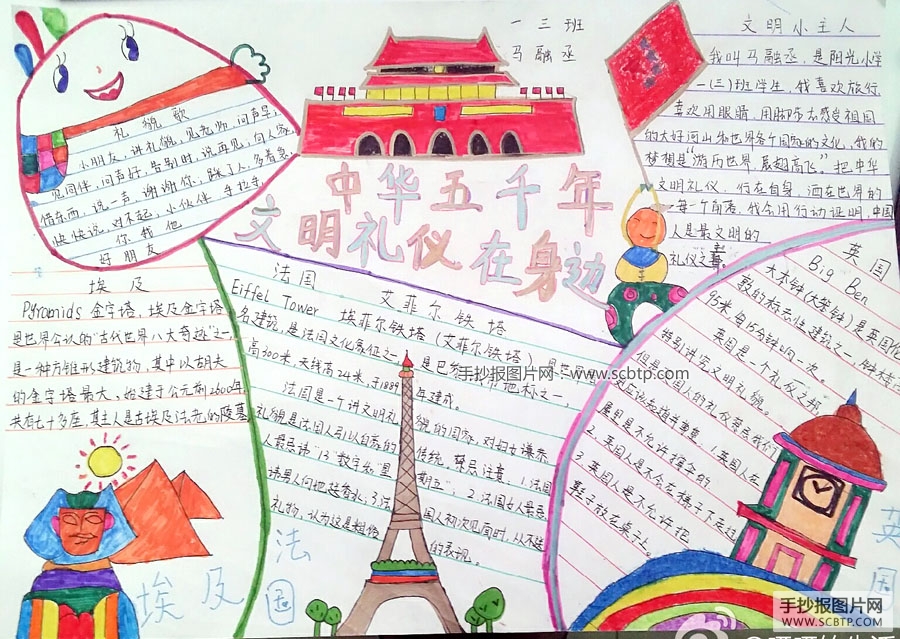 一 三 班
马 融 丞
中华五千年
文明礼仪在身边
礼 貌 歌
小朋友，讲礼貌，见老师，问声早，
见同伴，问声好，告别时，说再见，向人家
借东西，说一声，谢谢你，踩了人，多着急，
快快说，对不起，小伙伴，手拉手，
你 我 他
好 朋 友
文 明 小 主 人
我叫马融丞，是阳光小学
一(三)班学生，我喜欢旅行，
喜欢用眼睛，用脚步去感受祖国
的大好河山和世界各个国家的文化，我的
梦想是“游历世界，展翅高飞”。把中华
文明礼仪，行在自身，洒在世界的
每一个角落，我会用行动证明，中国
人是最文明的
礼仪之
埃 及
Pyramids 金字塔，埃及金字塔
是世界公认的“古代世界八大奇迹”之一，
是一种方锥形建筑物，其中以胡夫
的金字塔最大。始建于公元前2600年
共有七十多座，其主人是古埃及法老的陵墓
埃及
法 国 艾 菲 尔 铁 塔
Eiffel Tower 埃菲尔铁塔（艾菲尔铁塔）是
名建筑，是法国文化象征之一，是巴 地标之一，
高300米，天线高24米，于1889年建成。
法国是一个讲文明礼貌的国家，对妇女谦恭
礼貌是法国人引以自豪的传统，禁忌注意：1.法国
人最忌讳“13”数字，“星期五”；2.法国女人最忌
讳男人问她 香水；3.法国人初次见面时，从不送
礼物，认为这是粗俗的表现。
法国
英 国
Big Ben
大本钟（大笨钟）是英国伦
敦的标志性建筑之一，钟楼高
95米，每15分钟响一次。
英国是一个礼仪之邦，
特别讲究文明礼貌。
但是英国人的礼仪
1.英国人在
屋里是不允许撑伞的
2.英国人是不会在梯子下走过
3.英国人是不允许把
鞋子放在桌子上。
英国
手抄报图片网
www.scbtp.com
手抄报图片网
WWW.SCBTP.COM